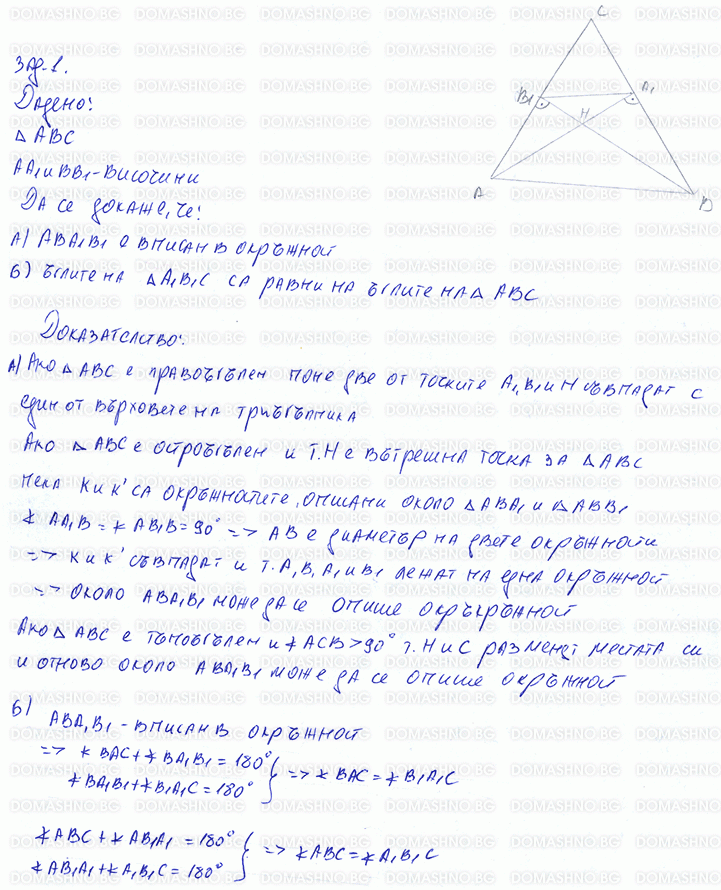 C
B₁
A₁
H
A
B
Зад. 1.
Дадено:
△ ABC
AA₁ и BB₁ - височини
Да се докаже, че:
А) ABA₁B₁ е вписан в окръжност
Б) ъглите на △ A₁B₁C са равни на ъглите на △ ABC
Доказателство:
А) Ако △ ABC е правоъгълен поне две от точките A₁, B₁ и H съвпадат с
един от върховете на триъгълника
Ако △ ABC е остроъгълен и т. H е вътрешна точка за △ ABC
Нека k и k' са окръжностите, описани около △ ABA₁ и △ ABB₁
∢ AA₁B = ∢ AB₁B = 90° => AB е диаметър на двете окръжности
=> k и k' съвпадат и т. A, B, A₁ и B₁ лежат на една окръжност
=> около ABA₁B₁ може да се опише окръжност
Ако △ ABC е тъпоъгълен и ∢ ACB > 90° т. H и C разменят местата си
и отново около ABA₁B₁ може да се опише окръжност
Б)
ABA₁B₁ - вписан в окръжност
=> ∢ BAC + ∢ BA₁B₁ = 180°
∢ BA₁B₁ + ∢ B₁A₁C = 180° } => ∢ BAC = ∢ B₁A₁C
∢ ABC + ∢ AB₁A₁ = 180°
∢ AB₁A₁ + ∢ A₁B₁C = 180° } => ∢ ABC = ∢ A₁B₁C
DOMASHNO.BG